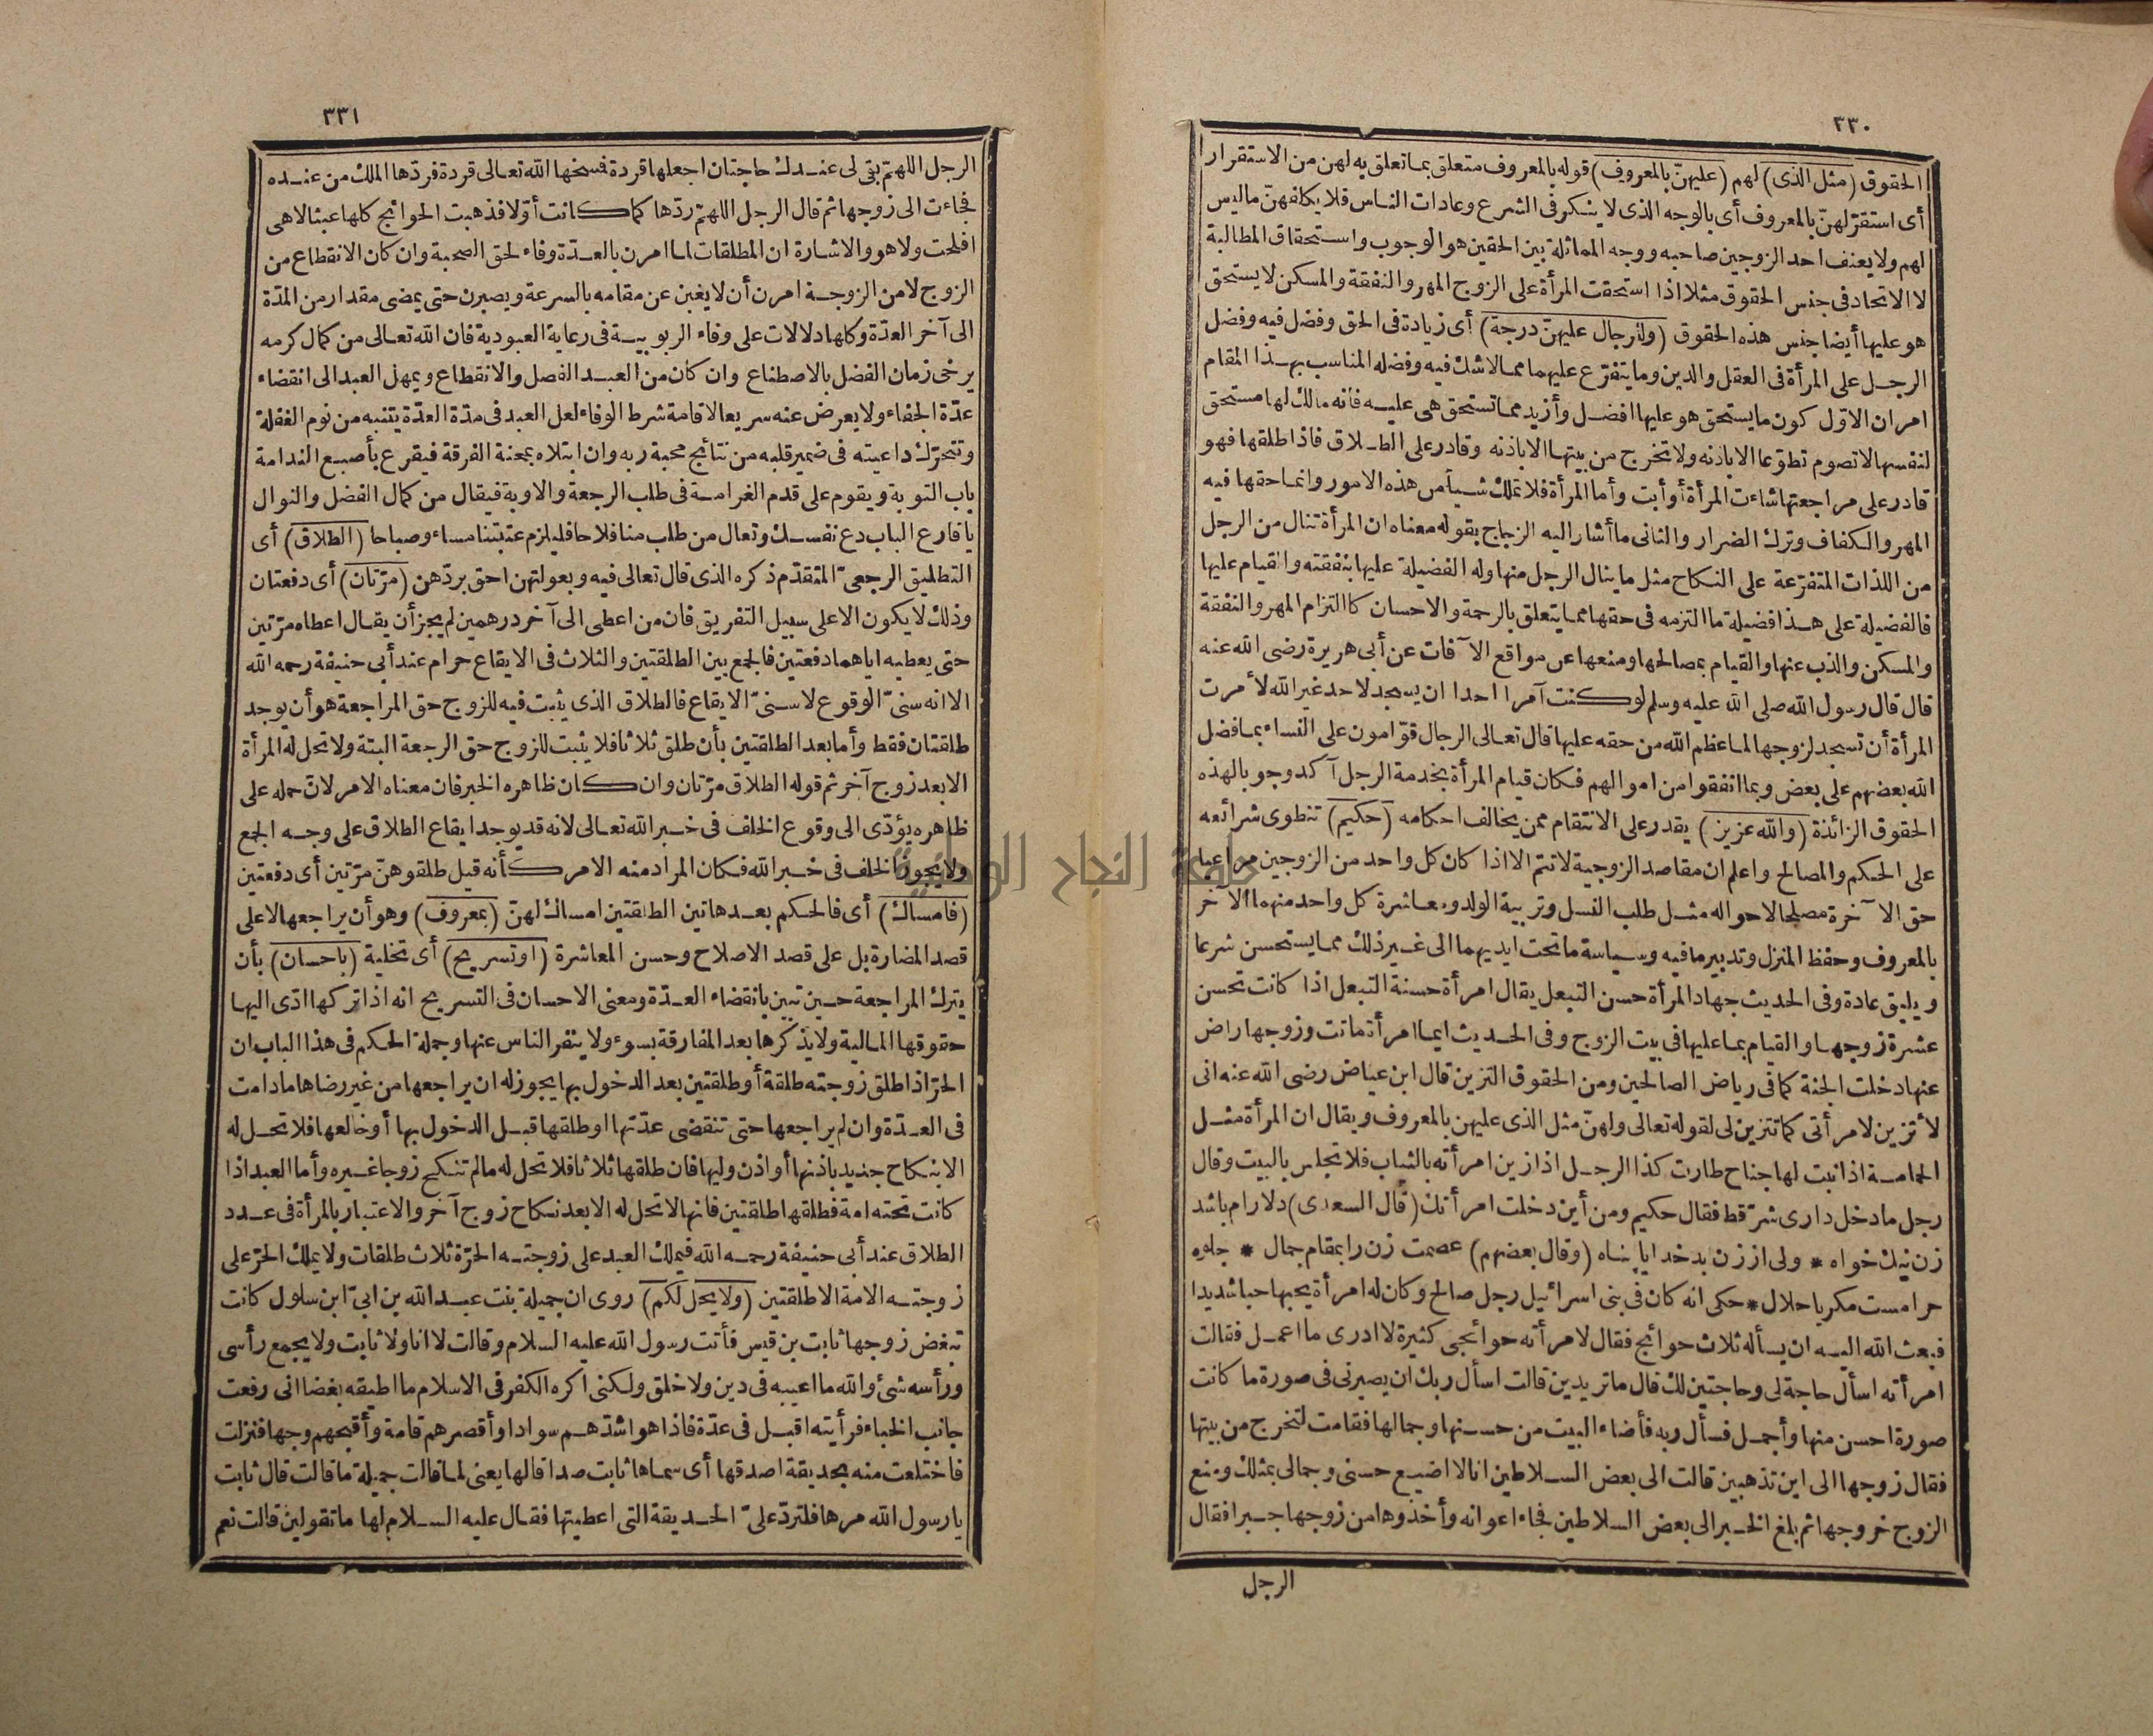 ٣٣٠
الحقوق (مثل الذى) لهم (عليهنّ بالمعروف) قوله بالمعروف متعلق بما تعلق به لهن من الاستقرار
أى استقرّ لهنّ بالمعروف أى بالوجه الذى لا ينكر فى الشرع وعادات الناس فلا يكلفهنّ ما ليس
لهم ولا يعنف احد الزوجين صاحبه ووجه المماثلة بين الحقين هو الوجوب واستحقاق المطالبة
لا الاتحاد فى جنس الحقوق مثلا اذا استحقت المرأة على الزوج المهر والنفقة والمسكن لا يستحق
هو عليها أيضا جنس هذه الحقوق (وللرجال عليهنّ درجة) أى زيادة فى الحق وفضل فيه وفضل
الرجل على المرأة فى العقل والدين وما يتفرّع عليهما مما لا شك فيه وفضله المناسب بهذا المقام
امران الاوّل كون ما يستحق هو عليها افضل وأزيد مما تستحق هى عليه فانه مالك لها مستحق
لنفسها لا تصوم تطوّعا الا باذنه ولا تخرج من بيتها الا باذنه وقادر على الطلاق فاذا طلقها فهو
قادر على مراجعتها شاءت المرأة أو أبت وأما المرأة فلا تملك شيأ من هذه الامور وانما حقها فيه
المهر والكفاف وترك الضرار والثانى ما أشار اليه الزجاج بقوله معناه ان المرأة تنال من الرجل
من اللذات المتفرّعة على النكاح مثل ما ينال الرجل منها وله الفضيلة عليها بنفقته والقيام عليها
فالفضيلة على هذا فضيلة ما التزمه فى حقها مما يتعلق بالرحمة والاحسان كالتزام المهر والنفقة
والمسكن والذب عنها والقيام بمصالحها ومنعها عن مواقع الآفات عن أبى هريرة رضى الله عنه
قال قال رسول الله صلى الله عليه وسلم لو كنت آمرا احدا ان يسجد لاحد غير الله لأمرت
المرأة أن تسجد لزوجها لما عظم الله من حقه عليها قال تعالى الرجال قوّامون على النساء بما فضل
الله بعضهم على بعض وبما انفقوا من اموالهم فكان قيام المرأة بخدمة الرجل آكد وجوبا لهذه
الحقوق الزائدة (والله عزيز) يقدر على الانتقام ممن يخالف احكامه (حكيم) تنطوى شرائعه
على الحكم والمصالح واعلم ان مقاصد الزوجية لا تتم الا اذا كان كل واحد من الزوجين مراعيا
حق الآخرة مصلحا لاحواله مثل طلب النسل وتربية الولد ومعاشرة كل واحد منهما الآخر
بالمعروف وحفظ المنزل وتدبير ما فيه وسياسة ما تحت ايديهما الى غير ذلك مما يستحسن شرعا
ويليق عادة وفى الحديث جهاد المرأة حسن التبعل يقال امرأة حسنة التبعل اذا كانت تحسن
عشرة زوجها والقيام بما عليها فى بيت الزوج وفى الحديث ايما امرأة ماتت وزوجها راض
عنها دخلت الجنة كما فى رياض الصالحين ومن الحقوق التزين قال ابن عياض رضى الله عنه انى
لأتزين لامرأتى كما تتزين لى لقوله تعالى ولهنّ مثل الذى عليهن بالمعروف ويقال ان المرأة مثل
الحمامة اذا نبت لها جناح طارت كذا الرجل اذا زين امرأته بالثياب فلا تجلس بالبيت وقال
رجل ما دخل دارى شرّ قط فقال حكيم ومن أين دخلت امرأتك (قال السعدى) دلارام باشد
زن نيك خواه * ولى از زن بد خدايا پناه (وقال بعضهم) عصمت زن را بمقام جمال * جلوه
حرامست مكر با حلال * حكى انه كان فى بنى اسرائيل رجل صالح وكان له امرأة يحبها حبا شديدا
فبعث الله اليه ان يسأله ثلاث حوائج فقال لامرأته حوائجى كثيرة لا ادرى ما اعمل فقالت
امرأته اسأل حاجة لى وحاجتين لك قال ما تريدين قالت اسأل ربك ان يصيرنى فى صورة ما كانت
صورة احسن منها وأجمل فسأل ربه فأضاء البيت من حسنها وجمالها فقامت لتخرج من بيتها
فقال زوجها الى اين تذهبين قالت الى بعض السلاطين انا لا اضيع حسنى وجمالى بمثلك ومنع
الزوج خروجها ثم بلغ الخبر الى بعض السلاطين فجاء اعوانه وأخذوها من زوجها جبرا فقال
الرجل
٣٣١
الرجل اللهمّ بقى لى عندك حاجتان اجعلها قردة فمسخها الله تعالى قردة فردّها الملك من عنده
فجاءت الى زوجها ثم قال الرجل اللهمّ ردّها كما كانت أوّلا فذهبت الحوائج كلها عبثا لا هى
افلحت ولا هو والاشارة ان المطلقات لما امرن بالعدّة وفاء لحق الصحبة وان كان الانقطاع من
الزوج لا من الزوجة امرن أن لا يغبن عن مقامه بالسرعة ويصبرن حتى يمضى مقدار من المدّة
الى آخر العدّة وكلها دلالات على وفاء الربوبية فى رعاية العبودية فان الله تعالى من كمال كرمه
يرخى زمان الفضل بالاصطناع وان كان من العبد الفصل والانقطاع ويمهل العبد الى انقضاء
عدّة الجفاء ولا يعرض عنه سريعا لاقامة شرط الوفاء لعل العبد فى مدّة العدّة يتنبه من نوم الغفلة
وتتحرّك داعيته فى ضمير قلبه من نتائج محبة ربه وان ابتلاه بمحنة الفرقة فيقرع بأصبع الندامة
باب التوبة ويقوم على قدم الغرامة فى طلب الرجعة والاوبة فيقال من كمال الفضل والنوال
يا قارع الباب دع نفسك وتعال من طلب منا فلاحا فليلزم عتبتنا مساء وصباحا (الطلاق) أى
التطليق الرجعىّ المتقدّم ذكره الذى قال تعالى فيه وبعولتهن احق بردّهن (مرّتان) أى دفعتان
وذلك لا يكون الا على سبيل التفريق فان من اعطى الى آخر درهمين لم يجز أن يقال اعطاه مرّتين
حتى يعطيه اياهما دفعتين فالجمع بين الطلقتين والثلاث فى الايقاع حرام عند أبى حنيفة رحمه الله
الا انه سنىّ الوقوع لا سنىّ الايقاع فالطلاق الذى يثبت فيه للزوج حق المراجعة هو أن يوجد
طلقتان فقط وأما بعد الطلقتين بأن طلق ثلاثا فلا يثبت للزوج حق الرجعة البتة ولا تحل له المرأة
الا بعد زوج آخر ثم قوله الطلاق مرّتان وان كان ظاهره الخبر فان معناه الامر لانّ حمله على
ظاهره يؤدّى الى وقوع الخلف فى خبر الله تعالى لانه قد يوجد ايقاع الطلاق على وجه الجمع
ولا يجوز الخلف فى خبر الله فكان المراد منه الامر كأنه قيل طلقوهنّ مرّتين أى دفعتين
(فامساك) أى فالحكم بعد هاتين الطلقتين امساك لهنّ (بمعروف) وهو أن يراجعها لا على
قصد المضارة بل على قصد الاصلاح وحسن المعاشرة (أو تسريح) أى تخلية (باحسان) بأن
يترك المراجعة حين تبين بانقضاء العدّة ومعنى الاحسان فى التسريح انه اذا تركها ادّى اليها
حقوقها المالية ولا يذكرها بعد المفارقة بسوء ولا ينفر الناس عنها وجملة الحكم فى هذا الباب ان
الحرّ اذا طلق زوجته طلقة أو طلقتين بعد الدخول بها يجوز له ان يراجعها من غير رضاها ما دامت
فى العدّة وان لم يراجعها حتى تنقضى عدّتها او طلقها قبل الدخول بها أو خالعها فلا تحل له
الا بنكاح جديد باذنها أو اذن وليها فان طلقها ثلاثا فلا تحل له ما لم تنكح زوجا غيره وأما العبد اذا
كانت تحته امة فطلقها طلقتين فانها لا تحل له الا بعد نكاح زوج آخر والاعتبار بالمرأة فى عدد
الطلاق عند أبى حنيفة رحمه الله فيملك العبد على زوجته الحرّة ثلاث طلقات ولا يملك الحرّ على
زوجته الامة الا طلقتين (ولا يحل لكم) روى ان جميلة بنت عبد الله بن ابىّ ابن سلول كانت
تبغض زوجها ثابت بن قيس فأتت رسول الله عليه السلام وقالت لا انا ولا ثابت ولا يجمع رأسى
ورأسه شئ والله ما اعيبه فى دين ولا خلق ولكنى اكره الكفر فى الاسلام ما اطيقه بغضا انى رفعت
جانب الخباء فرأيته اقبل فى عدّة فاذا هو اشدّهم سوادا وأقصرهم قامة وأقبحهم وجها فنزلت
فاختلعت منه بحديقة اصدقها أى سماها ثابت صداقا لها يعنى لما قالت جميلة ما قالت قال ثابت
يا رسول الله مرها فلتردّ علىّ الحديقة التى اعطيتها فقال عليه السلام لها ما تقولين قالت نعم
جامعة النجاح الوطنية